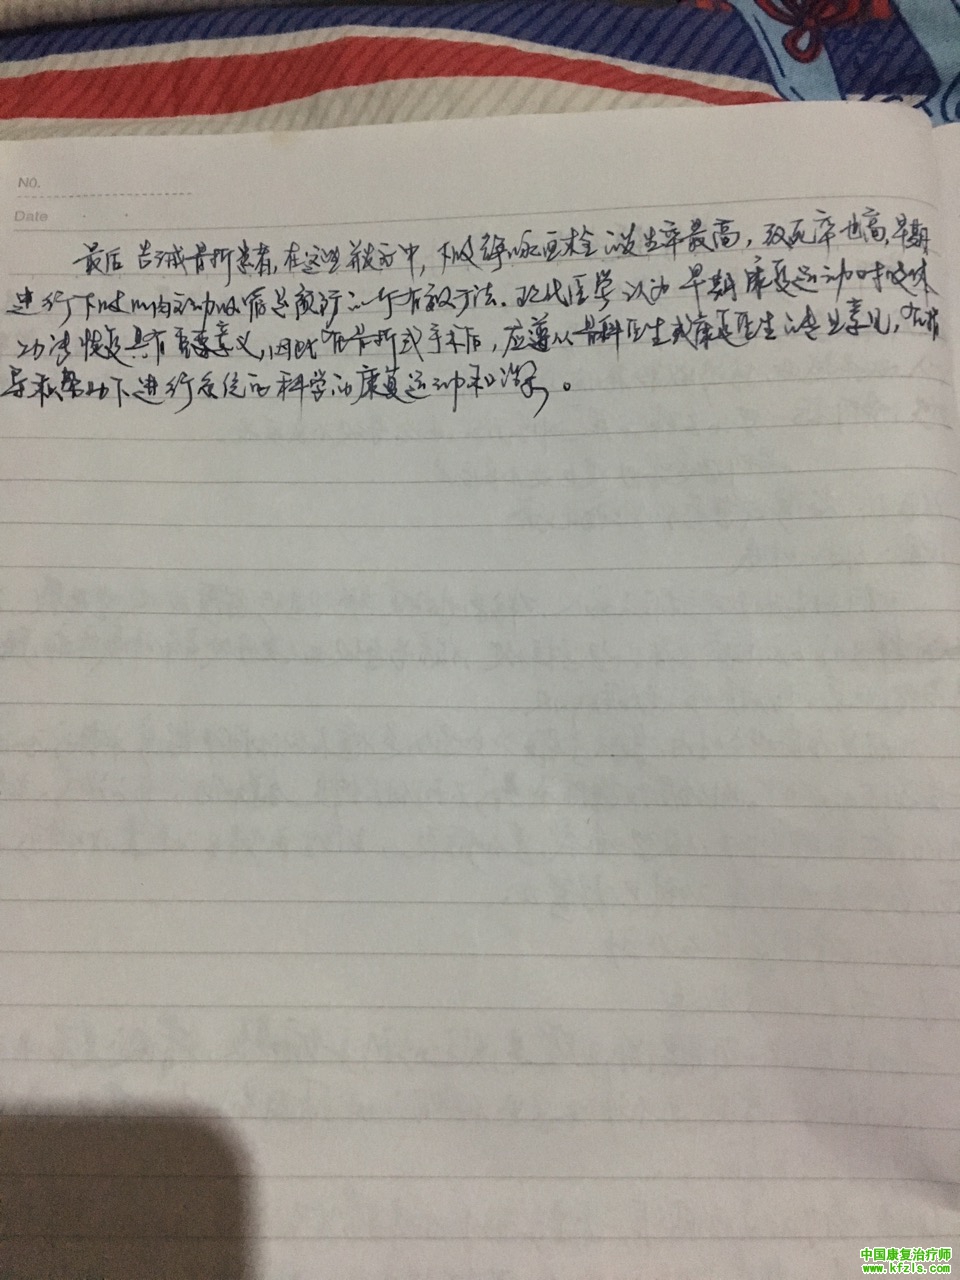 No.
Date
最后告诫骨折患者,在这些并发症中,下肢静脉血栓的发生率最高,致死率也高,早期
进行下肢肌肉主动收缩是预防的有效方法.现代医学认为早期康复运动对肢体
功能恢复具有重要意义,因此在骨折或手术后,应遵从骨科医生或康复医生的专业意见,在指
导和帮助下进行系统的科学的康复运动和治疗。
中国康复治疗师
www.kfzls.com